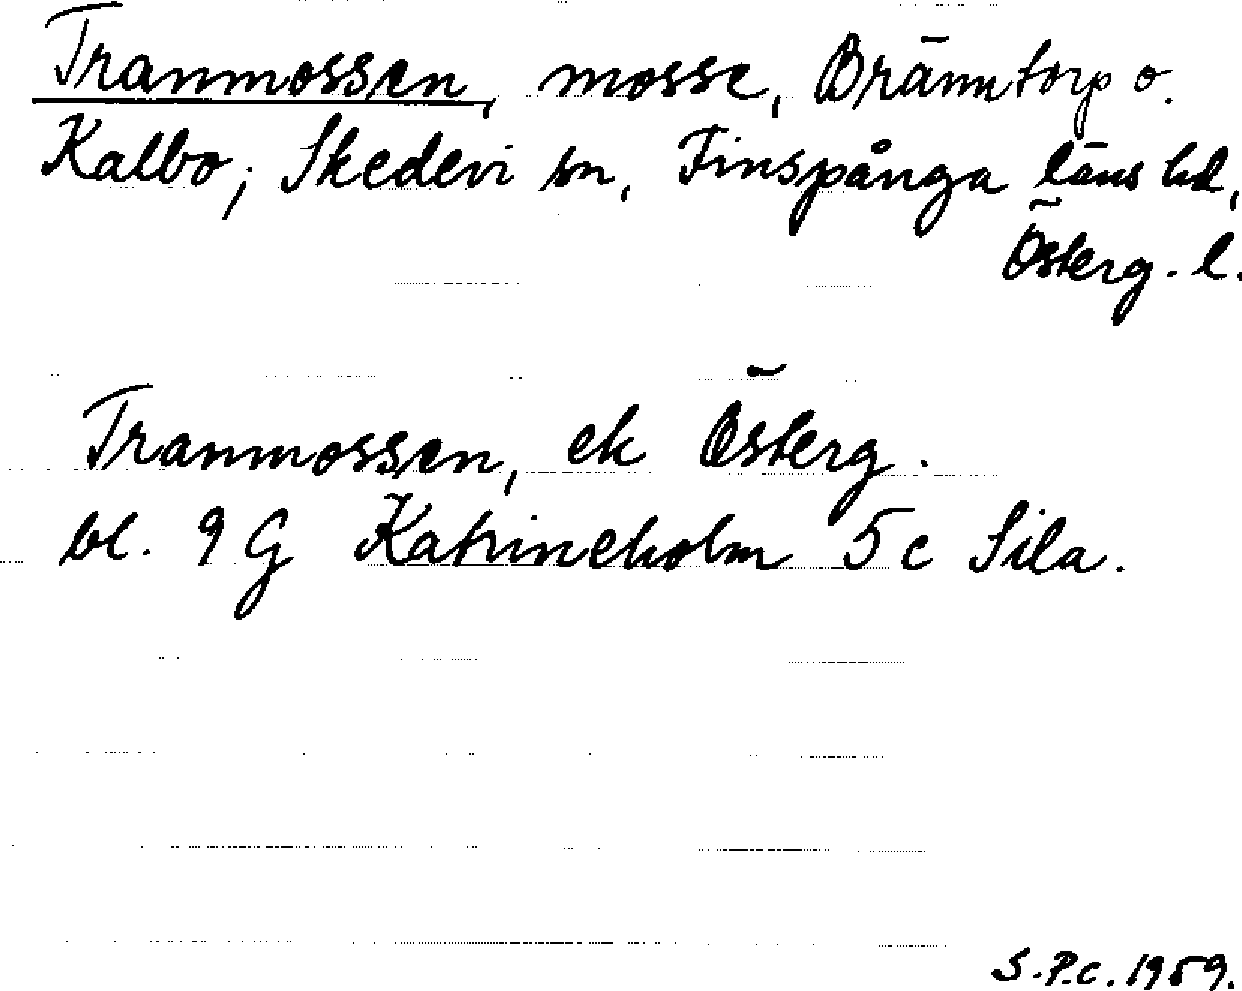 Tranmossen, mosse, Bränntorp o.
Kalbo; Skedevi sn, Finspånga läns hd,
Österg. l.
Tranmossen, ek Österg.
bl. 9 G Katrineholm 5 c Sila.
S.P.C. 1959.